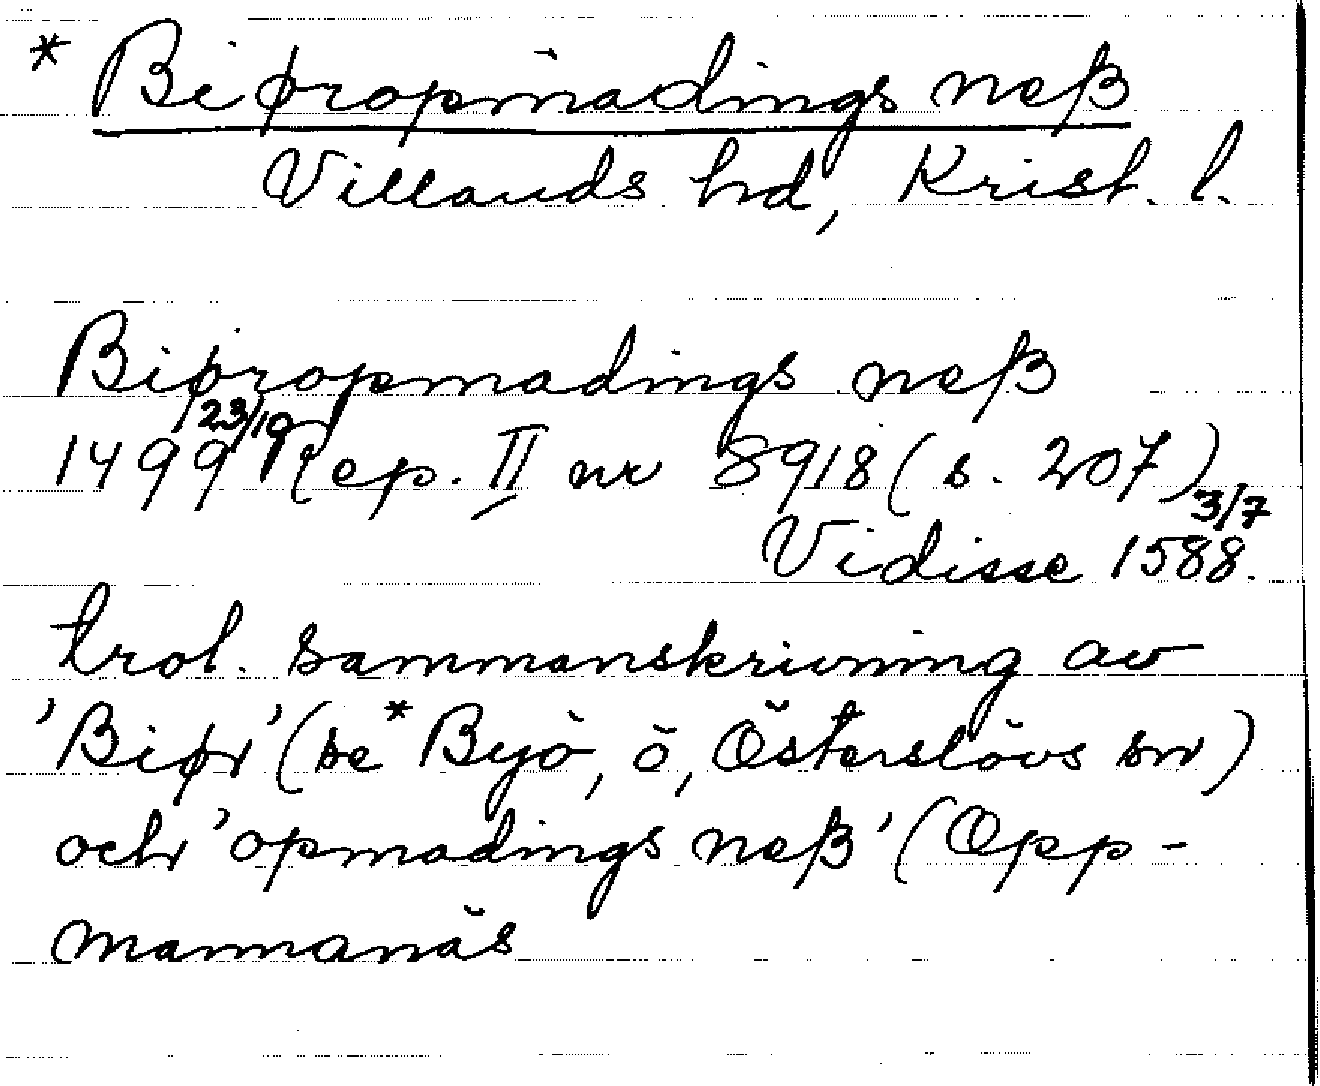 * Biøropmadings neß
Villands hd, Krist. l.
Biøropmadings neß
1499 23/10 Rep. II nr 8918 (s. 207)
Vidisse 1588 3/7.
trol. sammanskrivning av
'Biør' (se *Byö, ö, Österslövs sn)
och 'opmadings neß' (Opp-
mannanäs